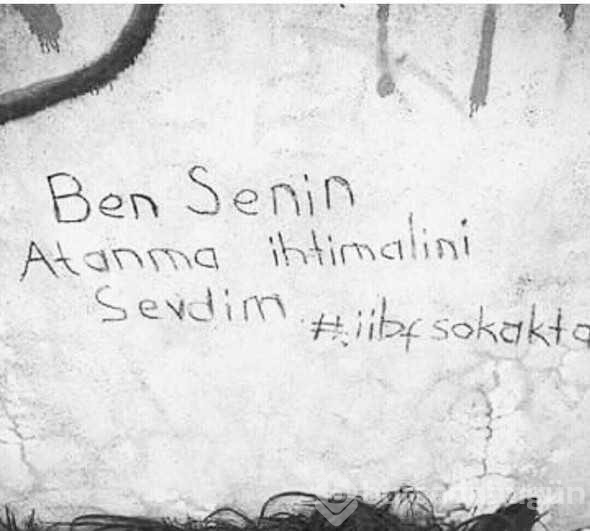 Ben Senin
Atanma ihtimalini
Sevdim
#iibfsokakta